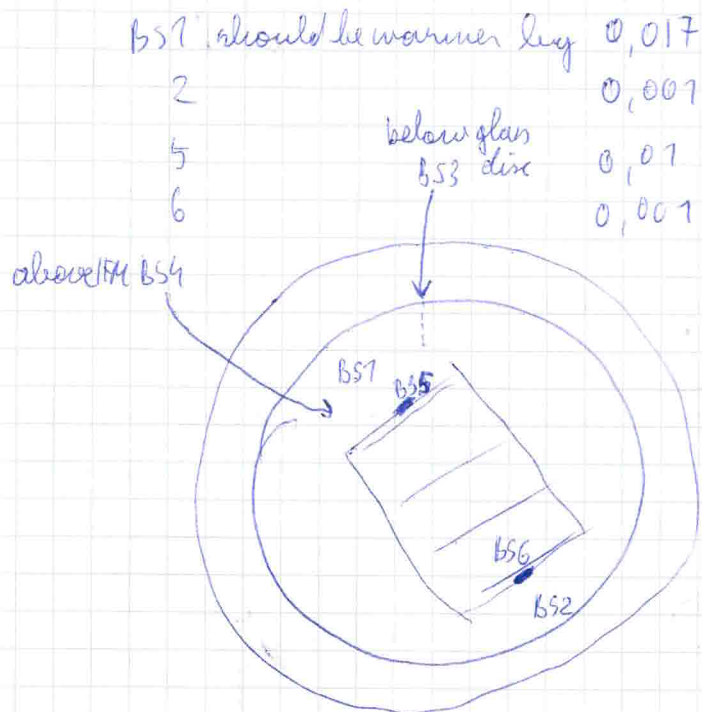 BS1 should be warmer by 0,017
2 0,001
5 0,01
6 0,001
below glass
BS3 disc
BS4
BS1
BS5
BS6
BS2